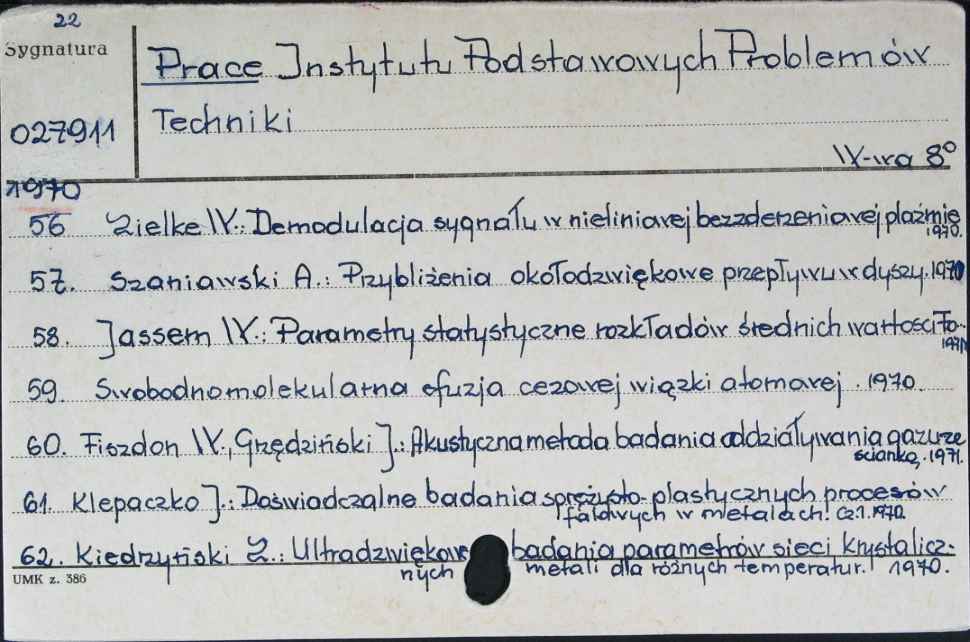 22
Sygnatura
Prace Instytutu Podstawowych Problemów
027911
Techniki
W-wa 8°
1970
56 Zielke W.: Demodulacja sygnału w nieliniowej bezzderzeniowej plaźmie
1970.
57. Szaniawski A.: Przybliżenia okołodzwiękowe przepływu w dyszy. 1970
58. Jassem W.: Parametry statystyczne rozkładów średnich wartości Fo.
1971
59. Swobodnomolekularna efuzja cezowej wiązki atomowej. 1970.
60. Fiszdon W., Grzędziński J.: Akustyczna metoda badania oddziaływania gazu ze
ścianką. 1971.
61. Klepaczko J.: Doświadczalne badania sprężysto-plastycznych procesów
falowych w metalach. Cz.1. 1970.
62. Kiedrzyński Z.: Ultradzwiękowe badania parametrów sieci krystalicz-
nych metali dla różnych temperatur. 1970.
UMK z. 386